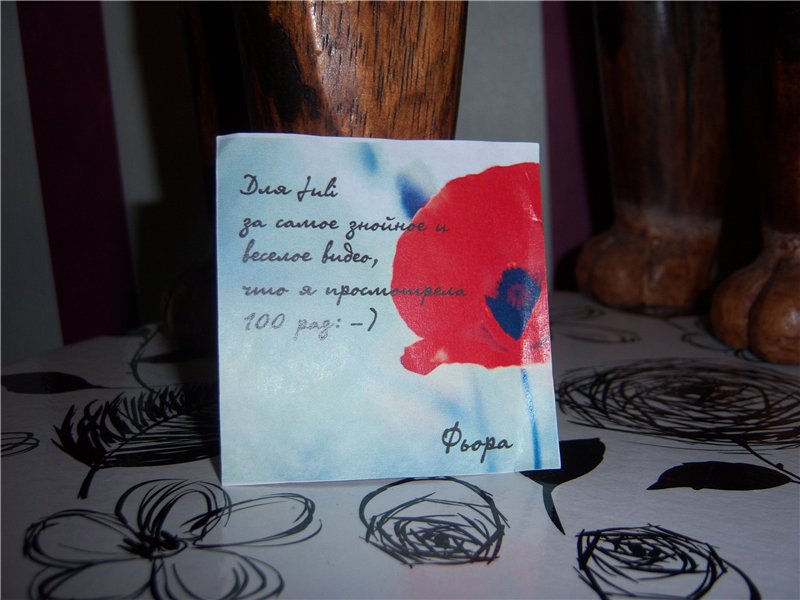 Для Juli
за самое знойное и
веселое видео,
что я просмотрела
100 раз: –)
Фьора